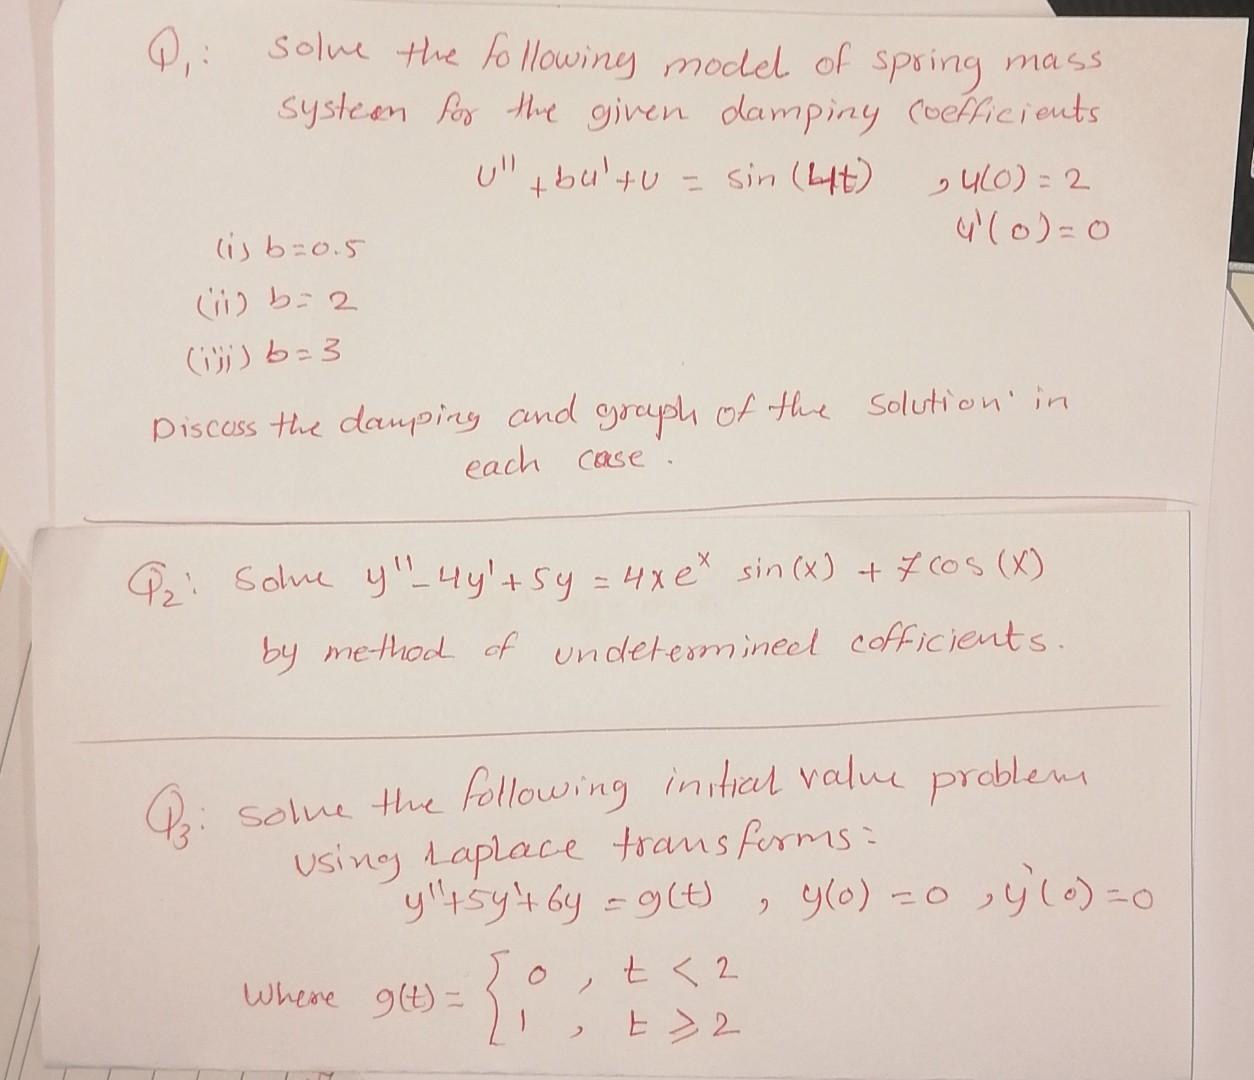 Q₁: solve the following model of spring mass
system for the given damping coefficients
u'' + bu' + u = sin(4t) , u(0) = 2
u'(0) = 0
(i) b = 0.5
(ii) b = 2
(iii) b = 3
Discuss the damping and graph of the solution in
each case.
Q₂: Solve y'' - 4y' + 5y = 4xeˣ sin(x) + 7cos(x)
by method of undetermined cofficients.
Q₃: solve the following initial value problem
using Laplace transforms:
y'' + 5y' + 6y = g(t) , y(0) = 0 , y'(0) = 0
Where g(t) = { 0 , t < 2
1 , t ⩾ 2